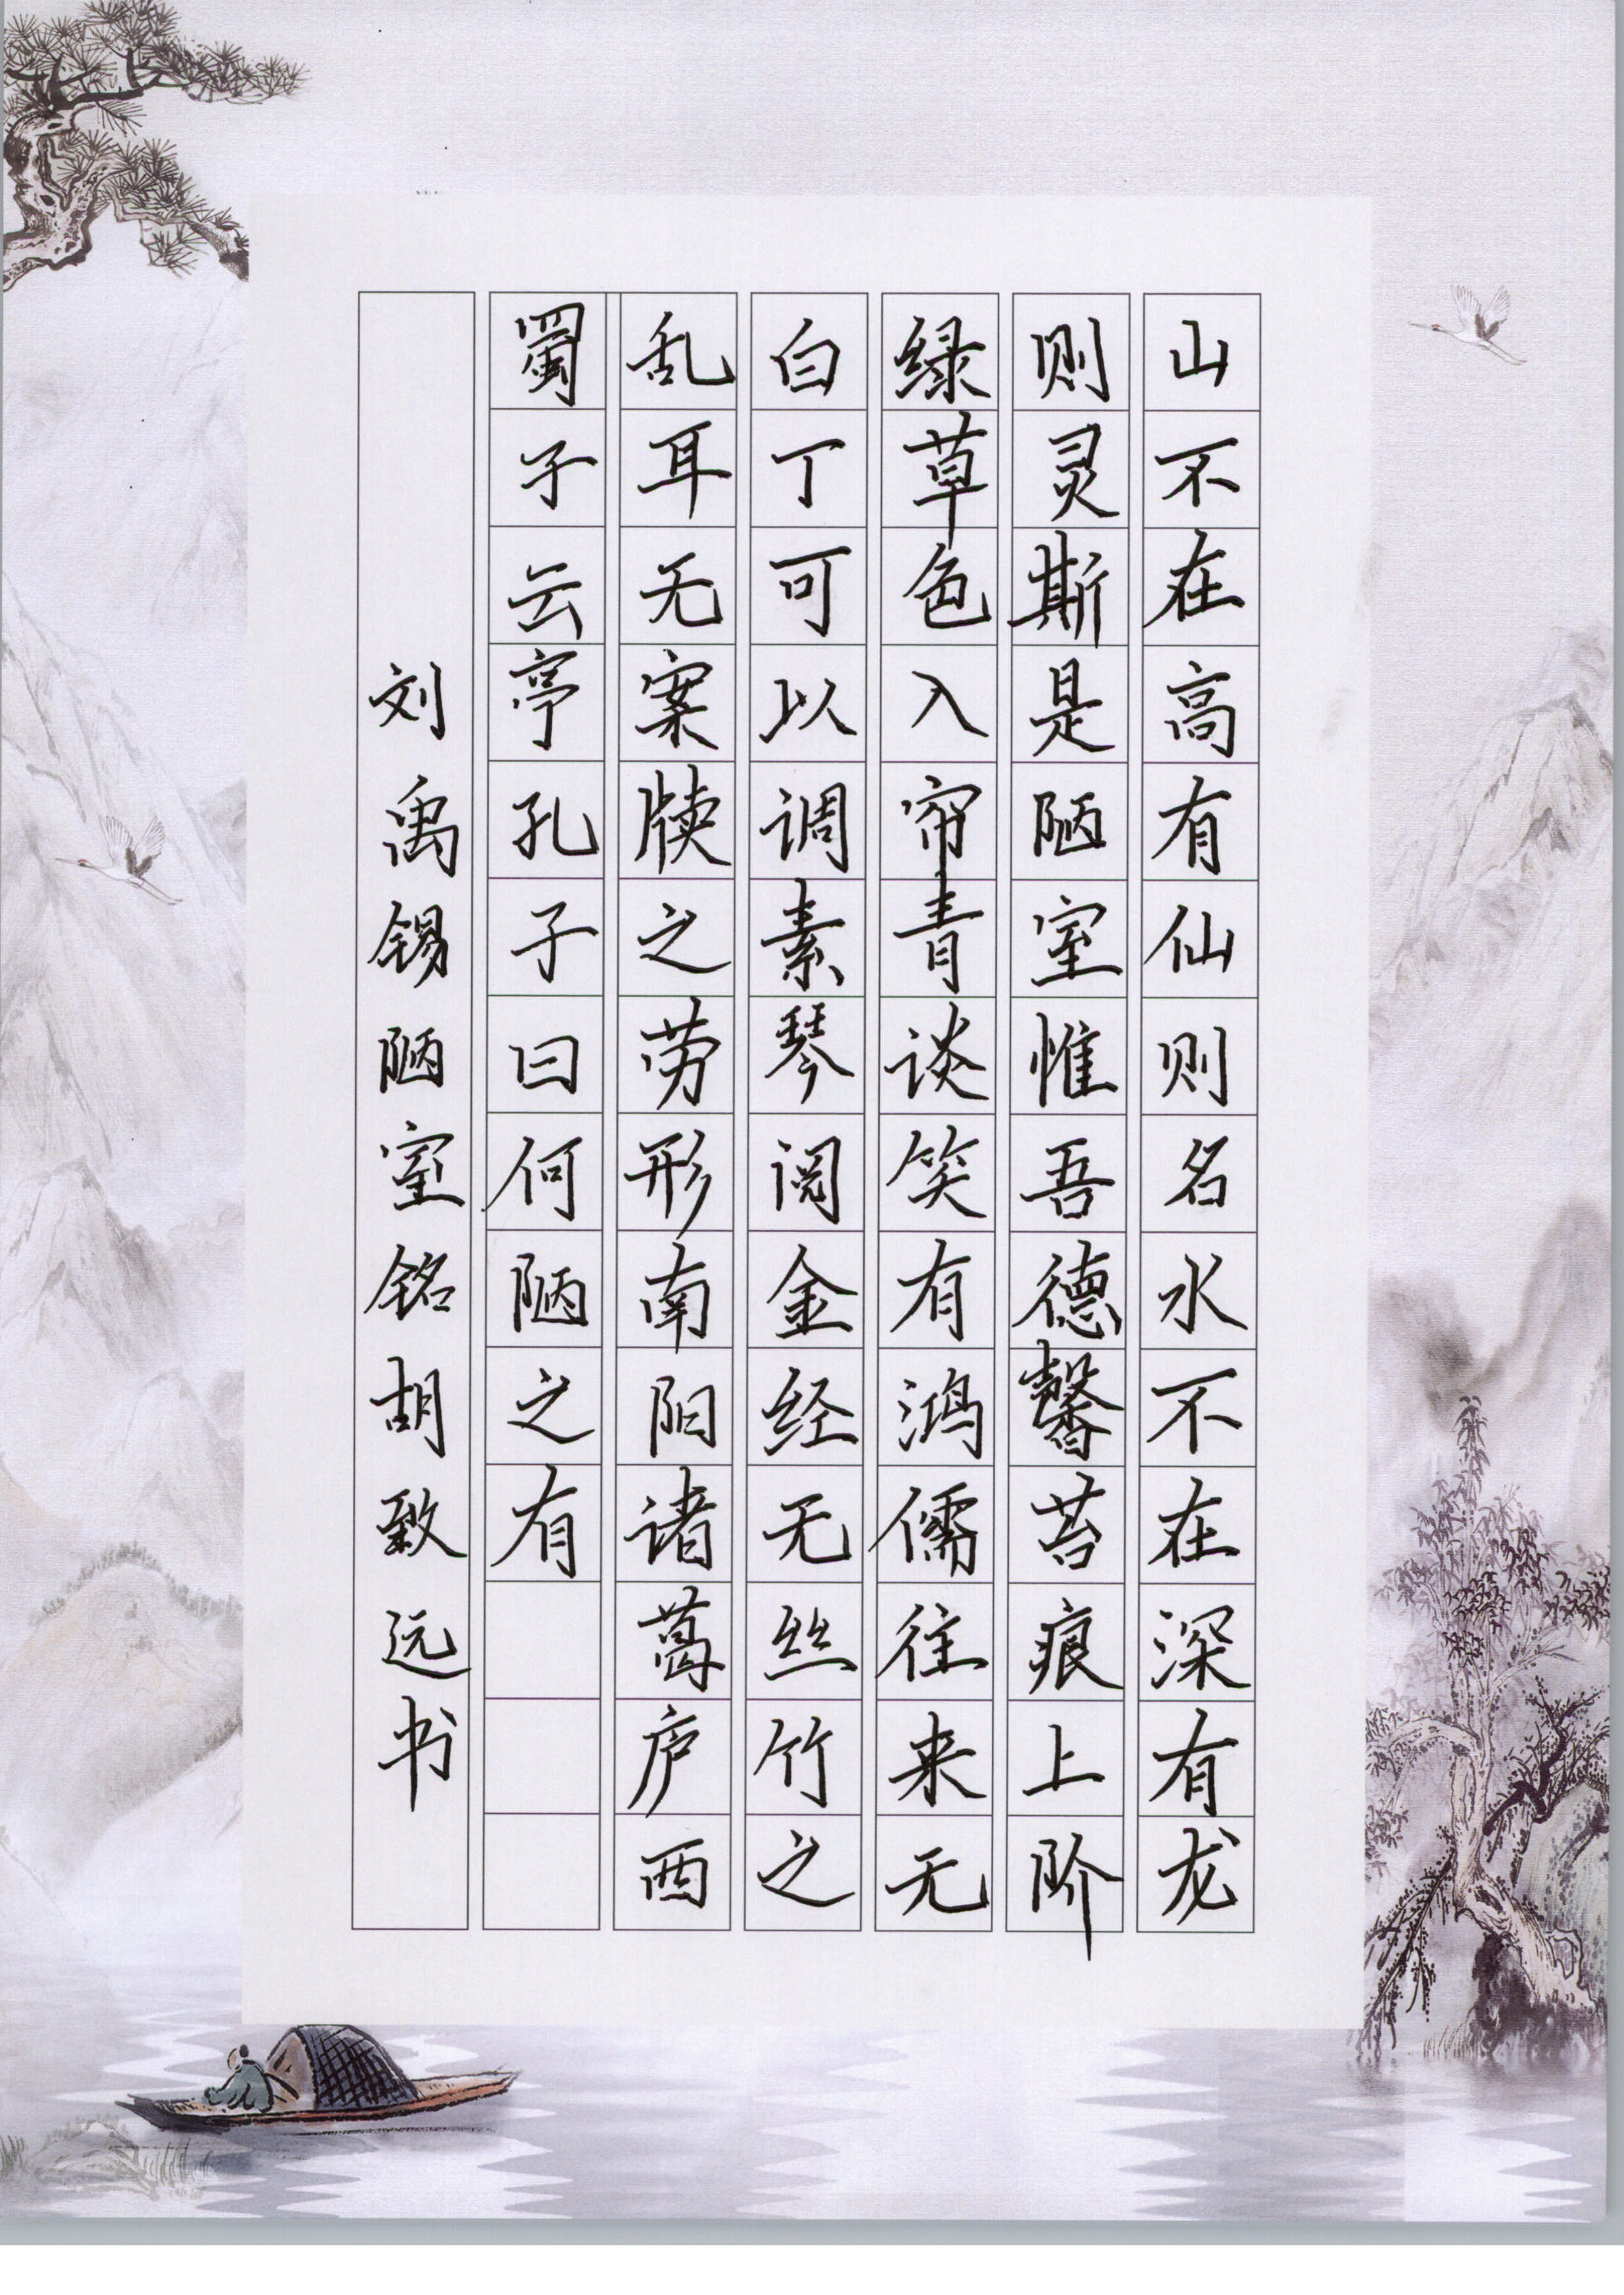 山不在高有仙则名水不在深有龙
则灵斯是陋室惟吾德馨苔痕上阶
绿草色入帘青谈笑有鸿儒往来无
白丁可以调素琴阅金经无丝竹之
乱耳无案牍之劳形南阳诸葛庐西
蜀子云亭孔子曰何陋之有
刘禹锡陋室铭胡致远书